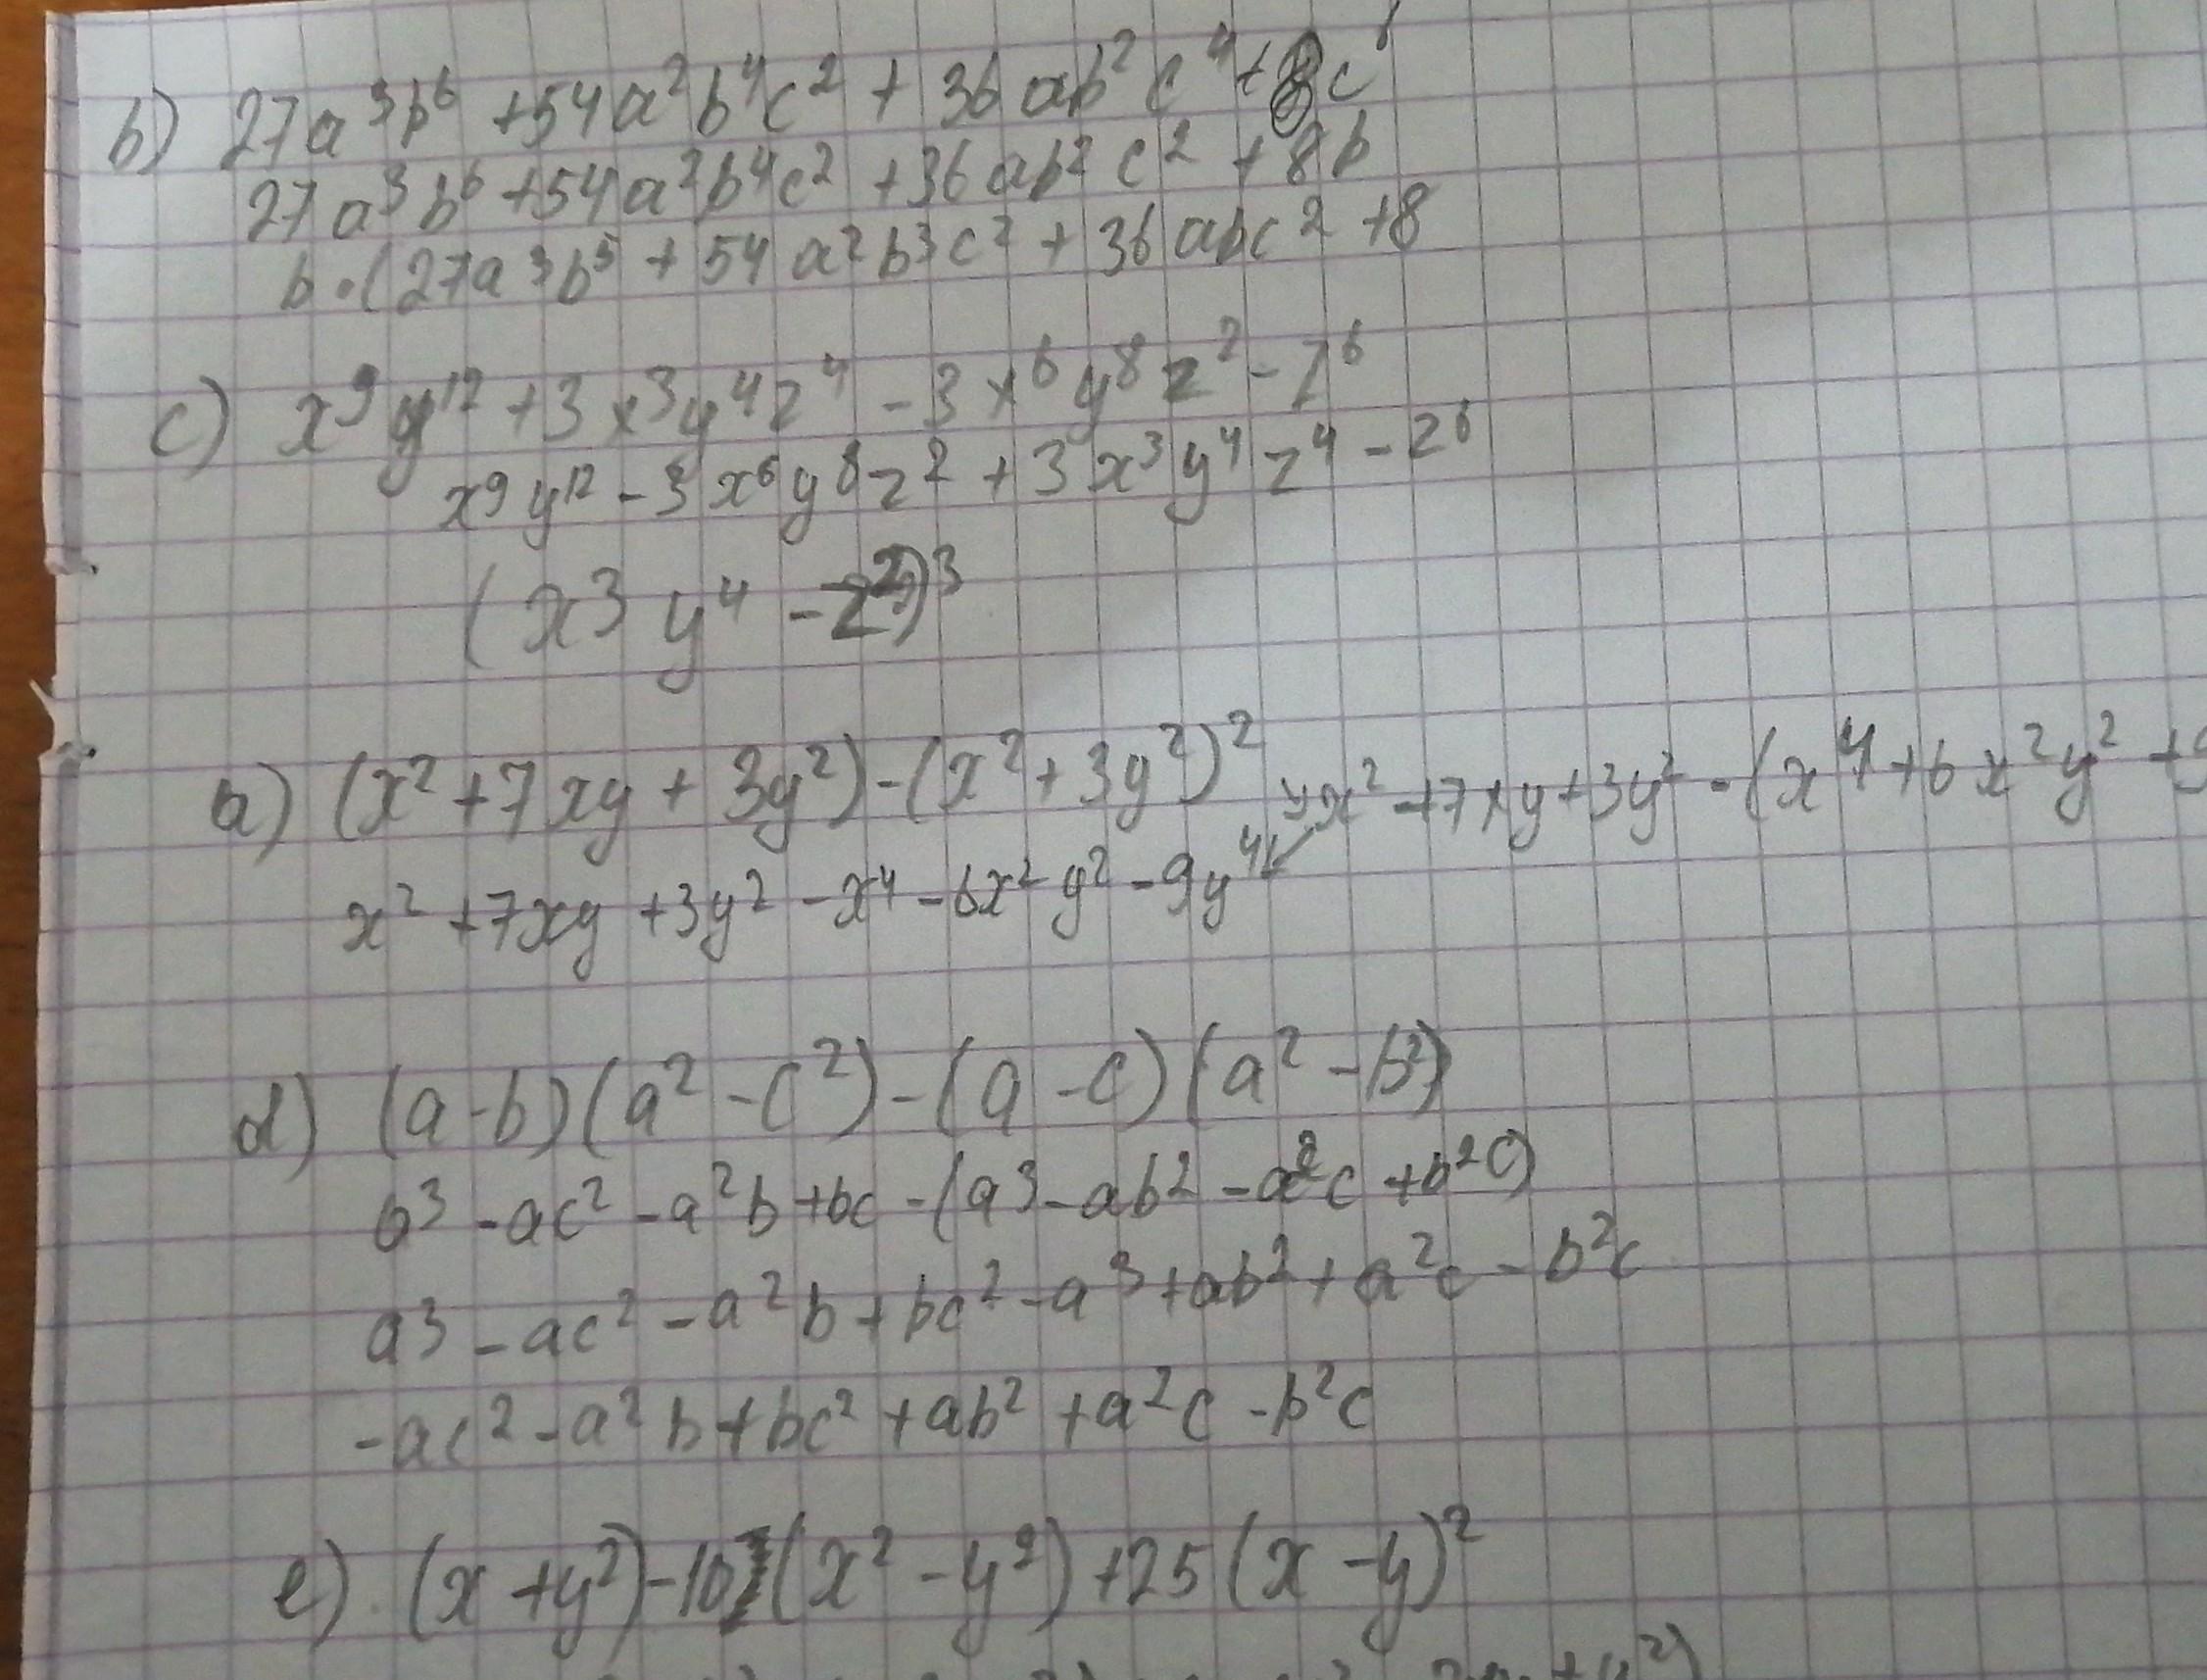 b) 27a³b⁶ + 54a²b⁴c² + 36ab²c⁴ + 8c⁶
27a³b⁶ + 54a²b⁴c² + 36ab²c² + 8b
b·(27a³b⁵ + 54a²b³c² + 36abc² + 8
c) x⁹y¹² + 3x³y⁴z⁴ - 3x⁶y⁸z² - z⁶
x⁹y¹² - 3x⁶y⁸z² + 3x³y⁴z⁴ - z⁶
(x³y⁴ - z²)³
a) (x² + 7xy + 3y²) - (x² + 3y²)² x² + 7xy + 3y² - (x⁴ + 6x²y² + 9
x² + 7xy + 3y² - x⁴ - 6x²y² - 9y⁴
d) (a-b)(a² - c²) - (a - c)(a² - b²)
a³ - ac² - a²b + bc - (a³ - ab² - a²c + b²c)
a³ - ac² - a²b + bc² - a³ + ab² + a²c - b²c
-ac² - a²b + bc² + ab² + a²c - b²c
e) (x + y²) - 10(x² - y²) + 25(x - y)²